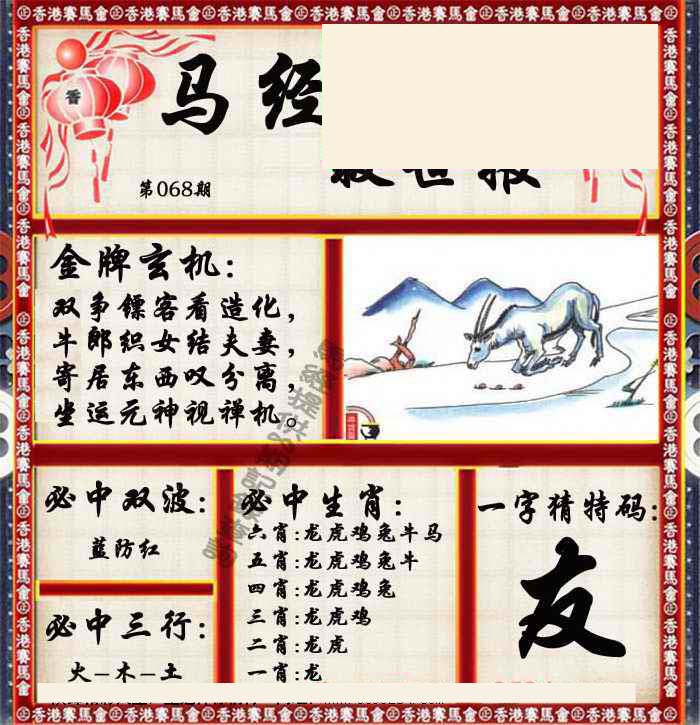 香港賽馬會
香
马经
救世报
第068期
金牌玄机:
双争镖客看造化,
牛郎织女结夫妻,
寄居东西叹分离,
坐运元神视禅机。
必中双波:
蓝防红
必中三行:
火-木-土
必中生肖:
六肖:龙虎鸡兔牛马
五肖:龙虎鸡兔牛
四肖:龙虎鸡兔
三肖:龙虎鸡
二肖:龙虎
一肖:龙
一字猜特码:
友